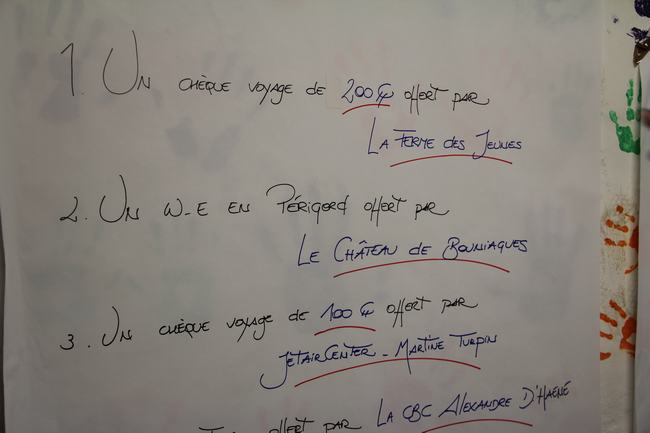 1. Un chèque voyage de 200 € offert par
La Ferme des Jeunes
2. Un W-E en Périgord offert par
Le Château de Bouniagues
3. Un chèque voyage de 100 € offert par
JetairCenter - Martine Turpin
offert par La CBC Alexandre D'Haené